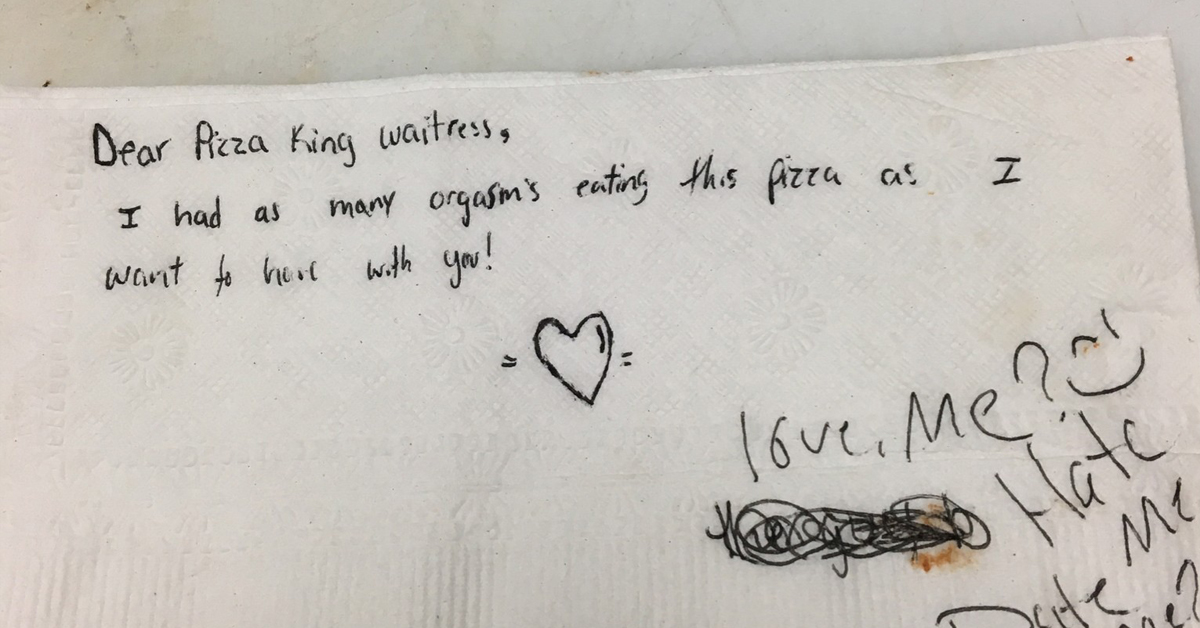 Dear Pizza King waitress,
I had as many orgasm's eating this pizza as I
want to have with you!
love, Me?
Hate
Me
Date